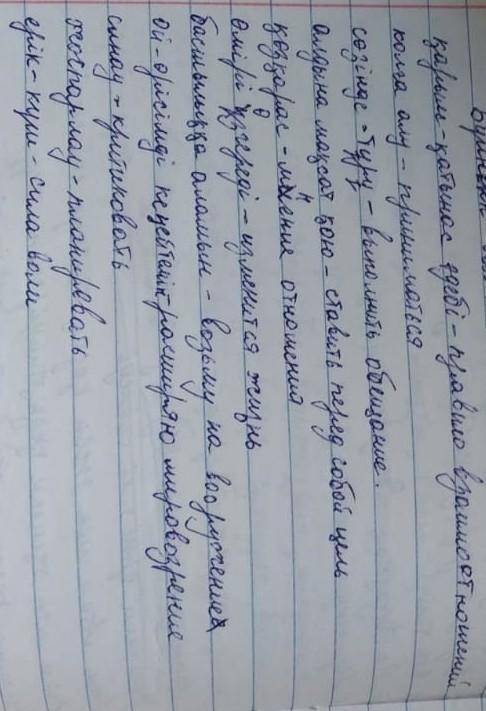 қарым-қатынас әдебі - правило взаимоотношений
қолға алу - приниматься
сөзінде тұру - выполнить обещание.
алдына мақсат қою - ставить перед собой цель
көзқарас - мнение отношения
өмірі өзгереді - изменится жизнь
басшылыққа аламын - возьму на вооружение
ой-өрісімді кеңейтемін - расширяю мировозрение
сынау - критиковать
жоспарлау - планировать
ерік-күш - сила воли